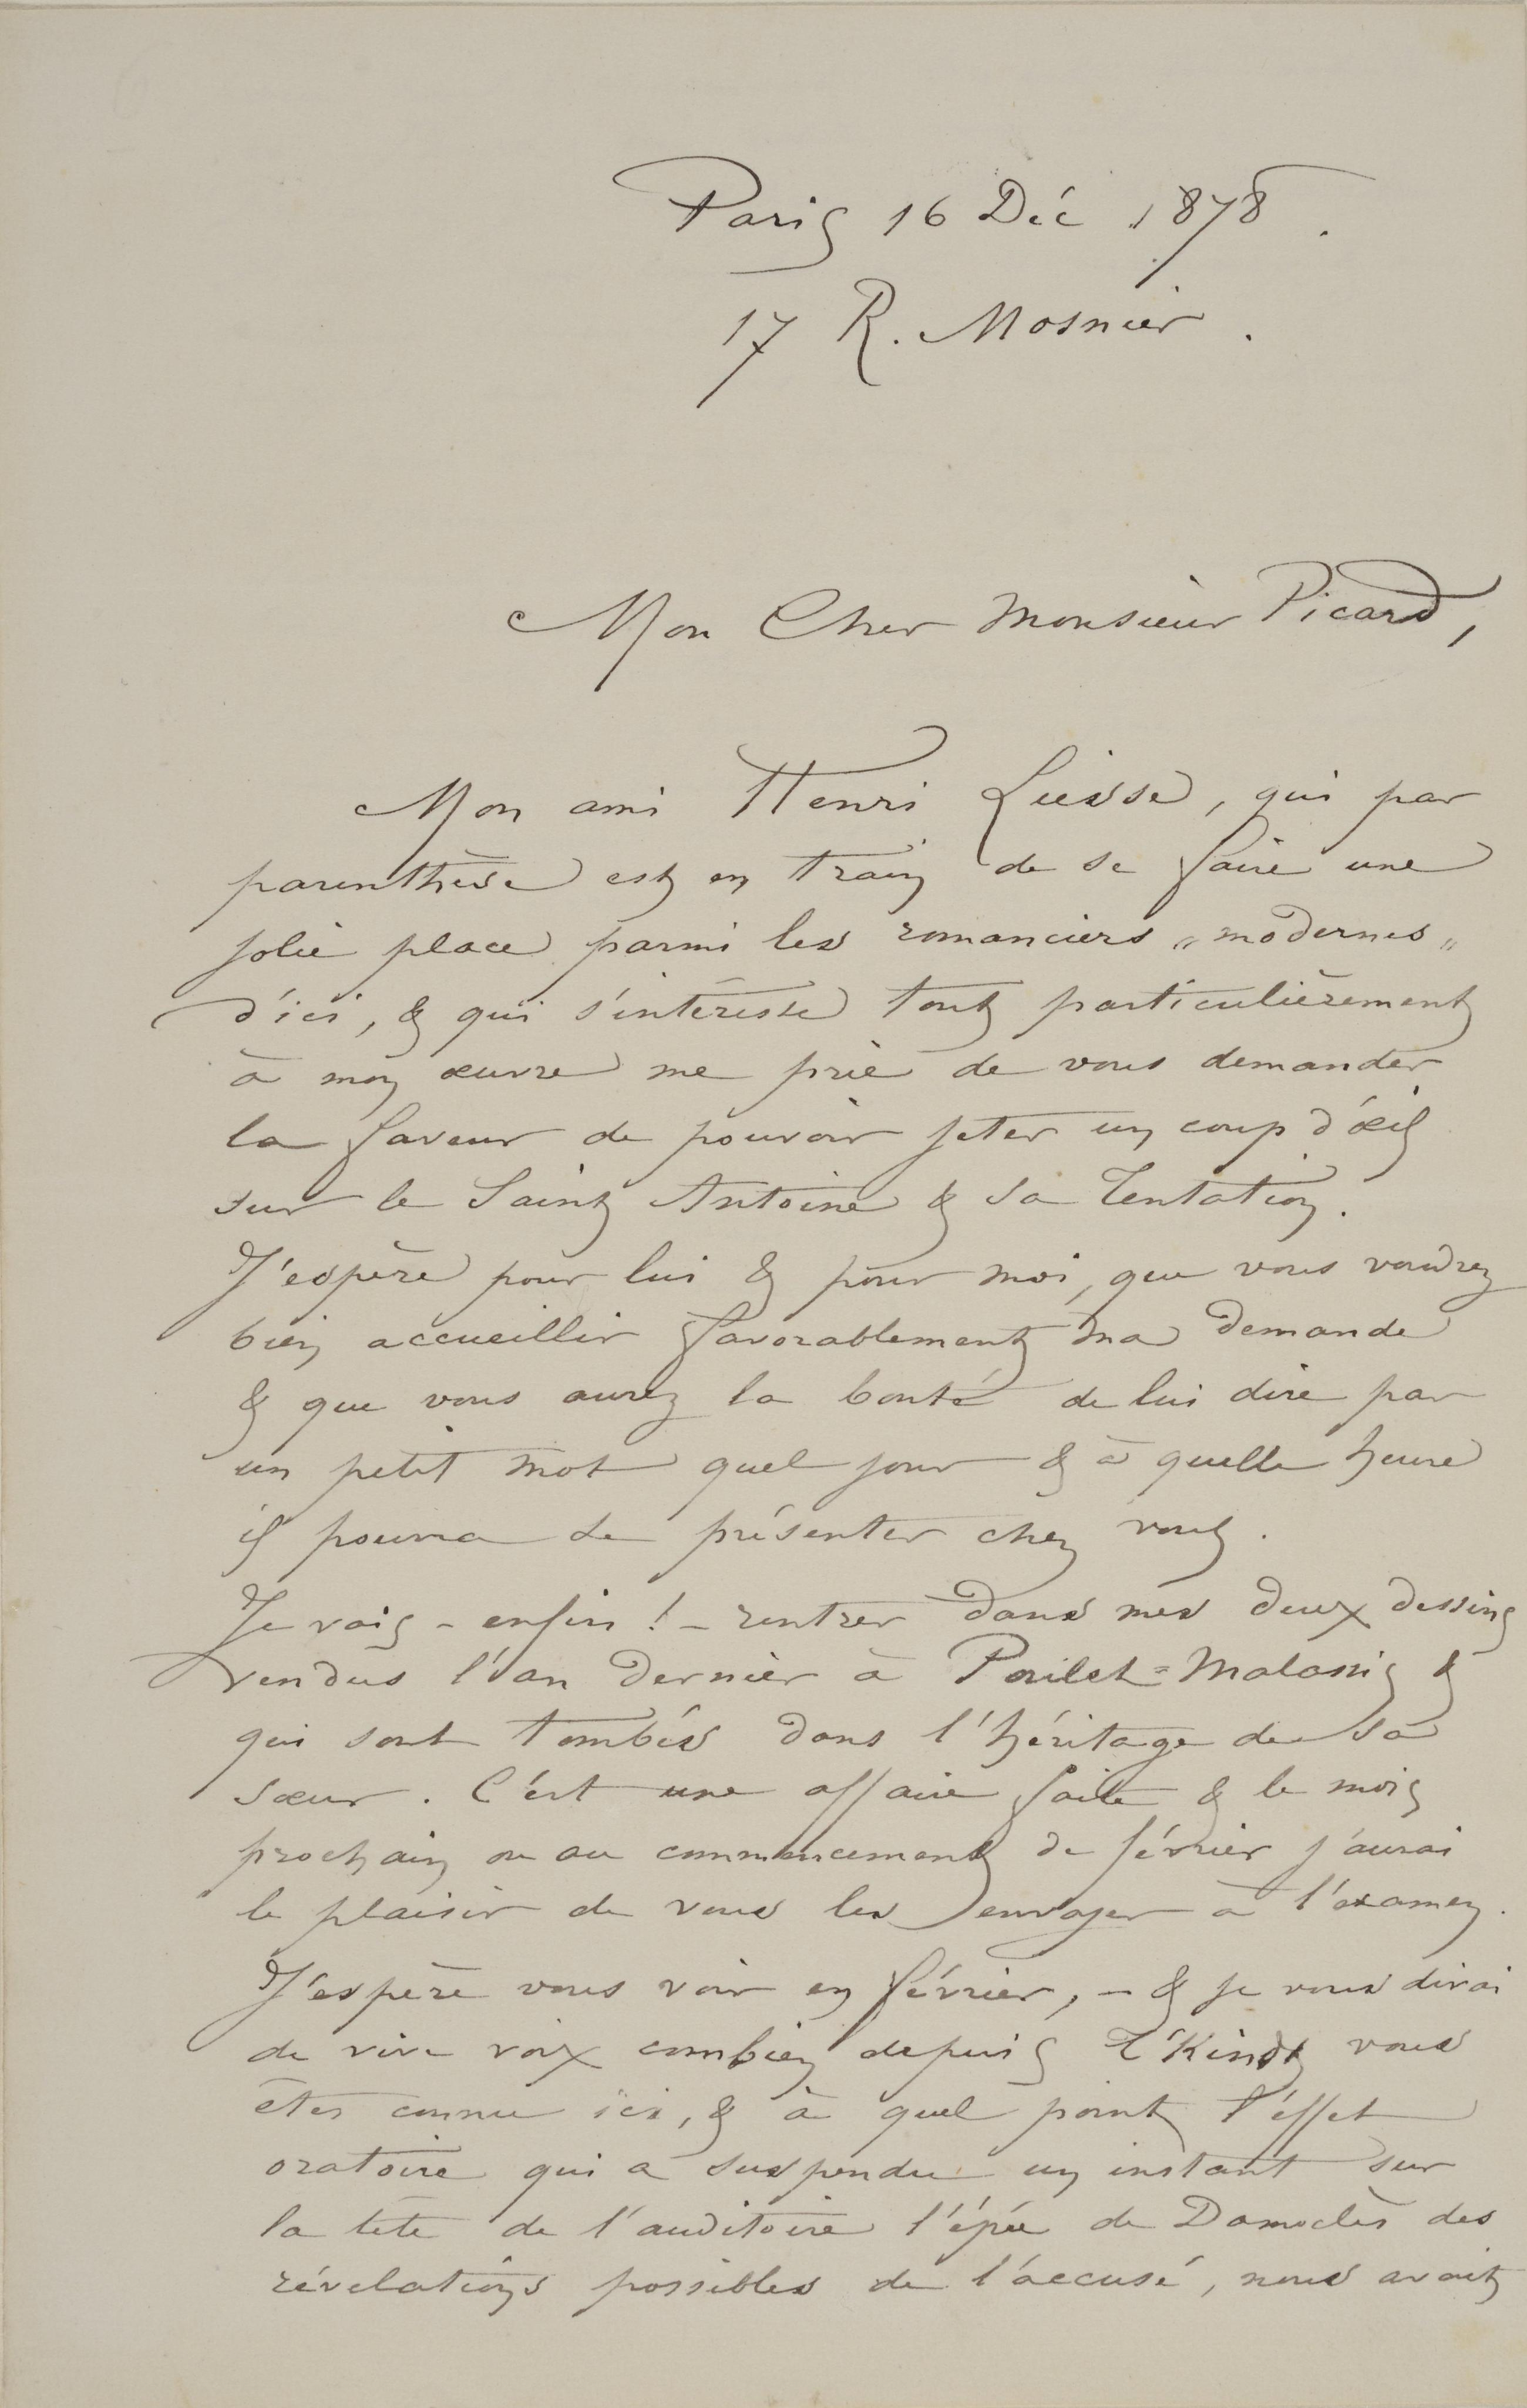 Paris 16 Déc 1878.
17 R. Mosnier.
Mon Cher Monsieur Picard,
Mon ami Henri Liesse, qui par
parenthèse est en train de se faire une
jolie place parmi les romanciers „modernes„
d'ici, & qui s'intéresse tout particulièrement
à mon œuvre me prie de vous demander
la faveur de pouvoir jeter un coup d'œil
sur le Saint Antoine & sa Tentation.
J'espère pour lui & pour moi, que vous voudrez
bien accueillir favorablement ma demande
& que vous aurez la bonté de lui dire par
un petit mot quel jour & à quelle heure
il pourra se présenter chez vous.
Je vais – enfin! – rentrer dans mes deux dessins
vendus l'an dernier à Poulet=Malassis &
qui sont tombés dans l'héritage de sa
sœur. C'est une affaire faite & le mois
prochain ou au commencement de février j'aurai
le plaisir de vous les envoyer à l'examen.
J'espère vous voir en février, – & je vous dirai
de vive voix combien depuis T'Kindt vous
êtes connu ici, & à quel point l'effet
oratoire qui a suspendu un instant sur
la tête de l'auditoire l'épée de Damoclès des
révélations possibles de l'accusé, nous avait